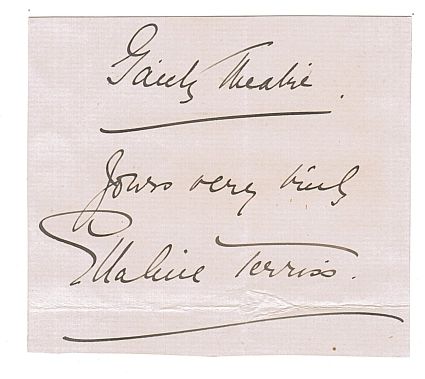 Gaiety Theatre.
Yours very truly
Ellaline Terriss.